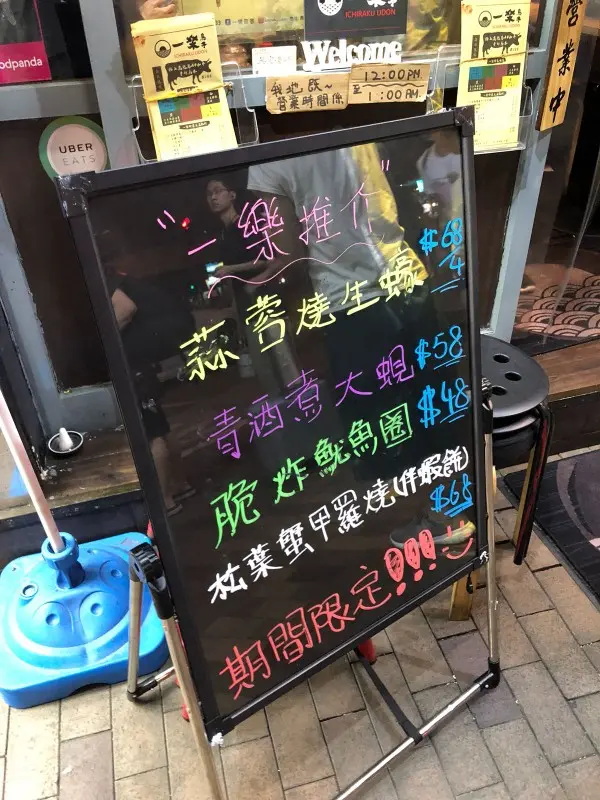 一樂
ICHIRAKU UDON
一樂
ICHIRAKU UDON
一樂
ICHIRAKU UDON
odpanda
Welcome
我地既~
營業時間係
12:00PM
至 1:00AM
營業中
UBER
EATS
"一樂推介"
蒜蓉燒生蠔 $68/4
青酒煮大蜆 $58
脆炸魷魚圈 $48
松葉蟹甲羅燒(伴蝦餅) $68
期間限定!!!